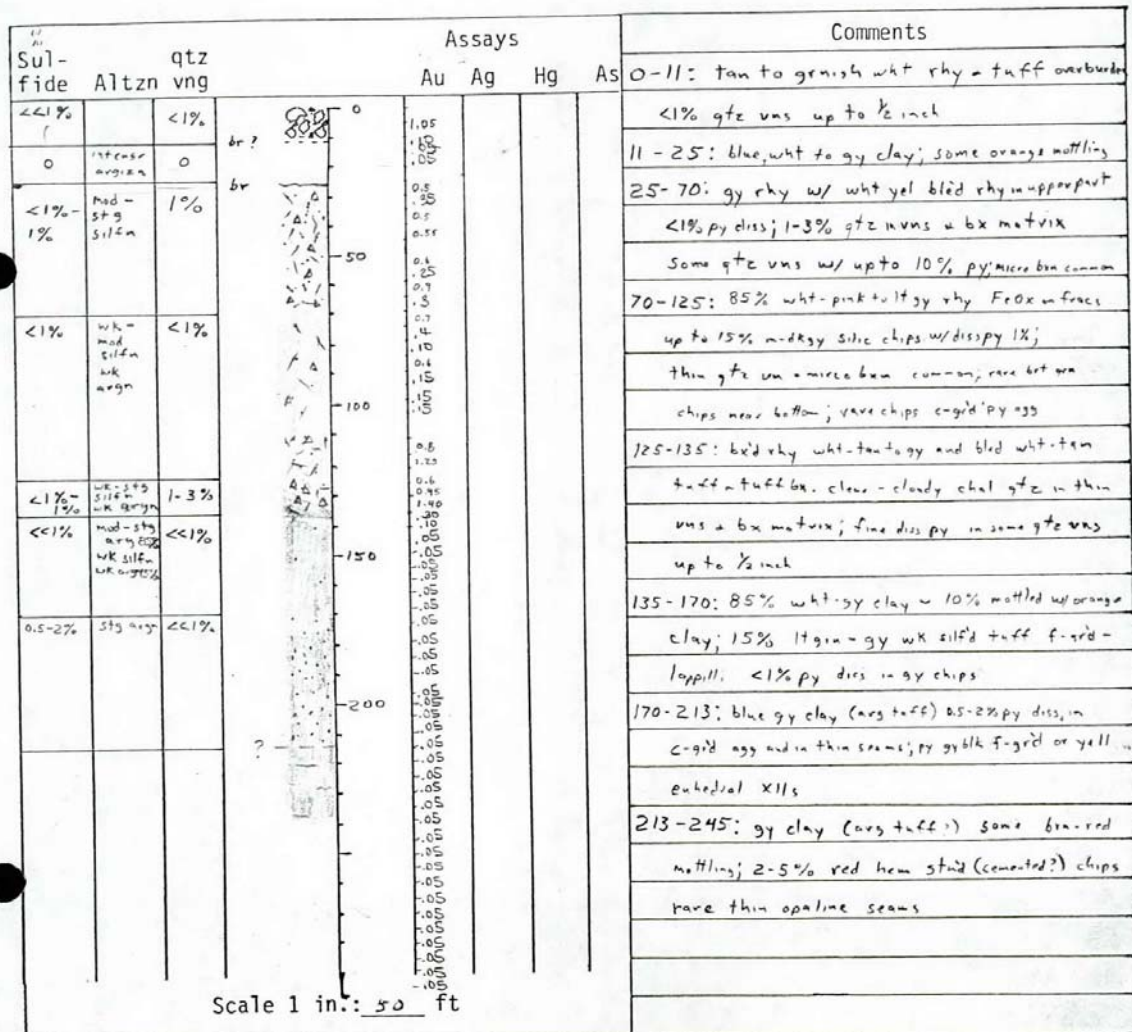 Sul-
fide
Altzn
qtz
vng
Assays
Au Ag Hg As
Comments
<<1% <1%
0 intense argizn 0
<1%-1% mod-stg silfn 1%
<1% wk-mod silfn wk argn <1%
<1%-1% wk-stg silfn wk argn 1-3%
<<1% mod-stg arg wk silfn <<1%
0.5-2% stg argn <<1%
br ?
br
?
0
50
100
150
200
1.05
.05
0.5
.35
0.5
0.55
0.6
.25
0.7
.3
0.7
.4
.10
0.6
.15
.15
.15
0.8
1.25
0.6
0.95
1.40
.30
.10
-.05
-.05
-.05
-.05
-.05
-.05
-.05
-.05
-.05
-.05
-.05
-.05
-.05
-.05
-.05
-.05
-.05
-.05
-.05
-.05
-.05
-.05
-.05
-.05
-.05
0-11: tan to grnish wht rhy - tuff overburden
<1% qtz vns up to 1/2 inch
11-25: blue, wht to gy clay; some orange mottling
25-70: gy rhy w/ wht yel bled rhy in upper part
<1% py diss; 1-3% qtz in vns & bx matrix
Some qtz vns w/ up to 10% py; micro bxn common
70-125: 85% wht-pink to lt gy rhy FeOx on fracs
up to 15% m-dk gy silic chips w/ diss py 1%;
thin qtz vn & mirco bxn common; rare brt grn
chips near bottom; rare chips c-gr'd py agg
125-135: bx'd rhy wht-tan to gy and bled wht-tan
tuff - tuff bx. clear-cloudy chal qtz in thin
vns & bx matrix; fine diss py in some qtz vns
up to 1/2 inch
135-170: 85% wht-gy clay ~ 10% mottled w/ orange
clay; 15% lt grn-gy wk silf'd tuff f-gr'd-
lappilli. <1% py diss in gy chips
170-213: blue gy clay (arg tuff) 0.5-2% py diss, in
c-gr'd agg and in thin seams; py gy blk f-gr'd or yell
euhedral xlls
213-245: gy clay (arg tuff?) some brn-red
mottling; 2-5% red hem stn'd (cemented?) chips
rare thin opaline seams
Scale 1 in.: 50 ft